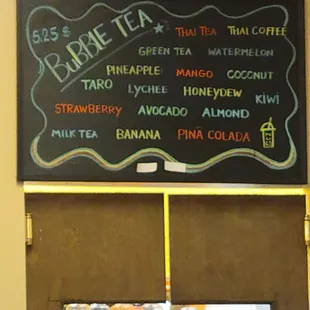 5.25 $
BUBBLE TEA
THAI TEA THAI COFFEE
GREEN TEA WATERMELON
PINEAPPLE MANGO COCONUT
TARO LYCHEE HONEYDEW KIWI
STRAWBERRY AVOCADO ALMOND
MILK TEA BANANA PINÃ COLADA